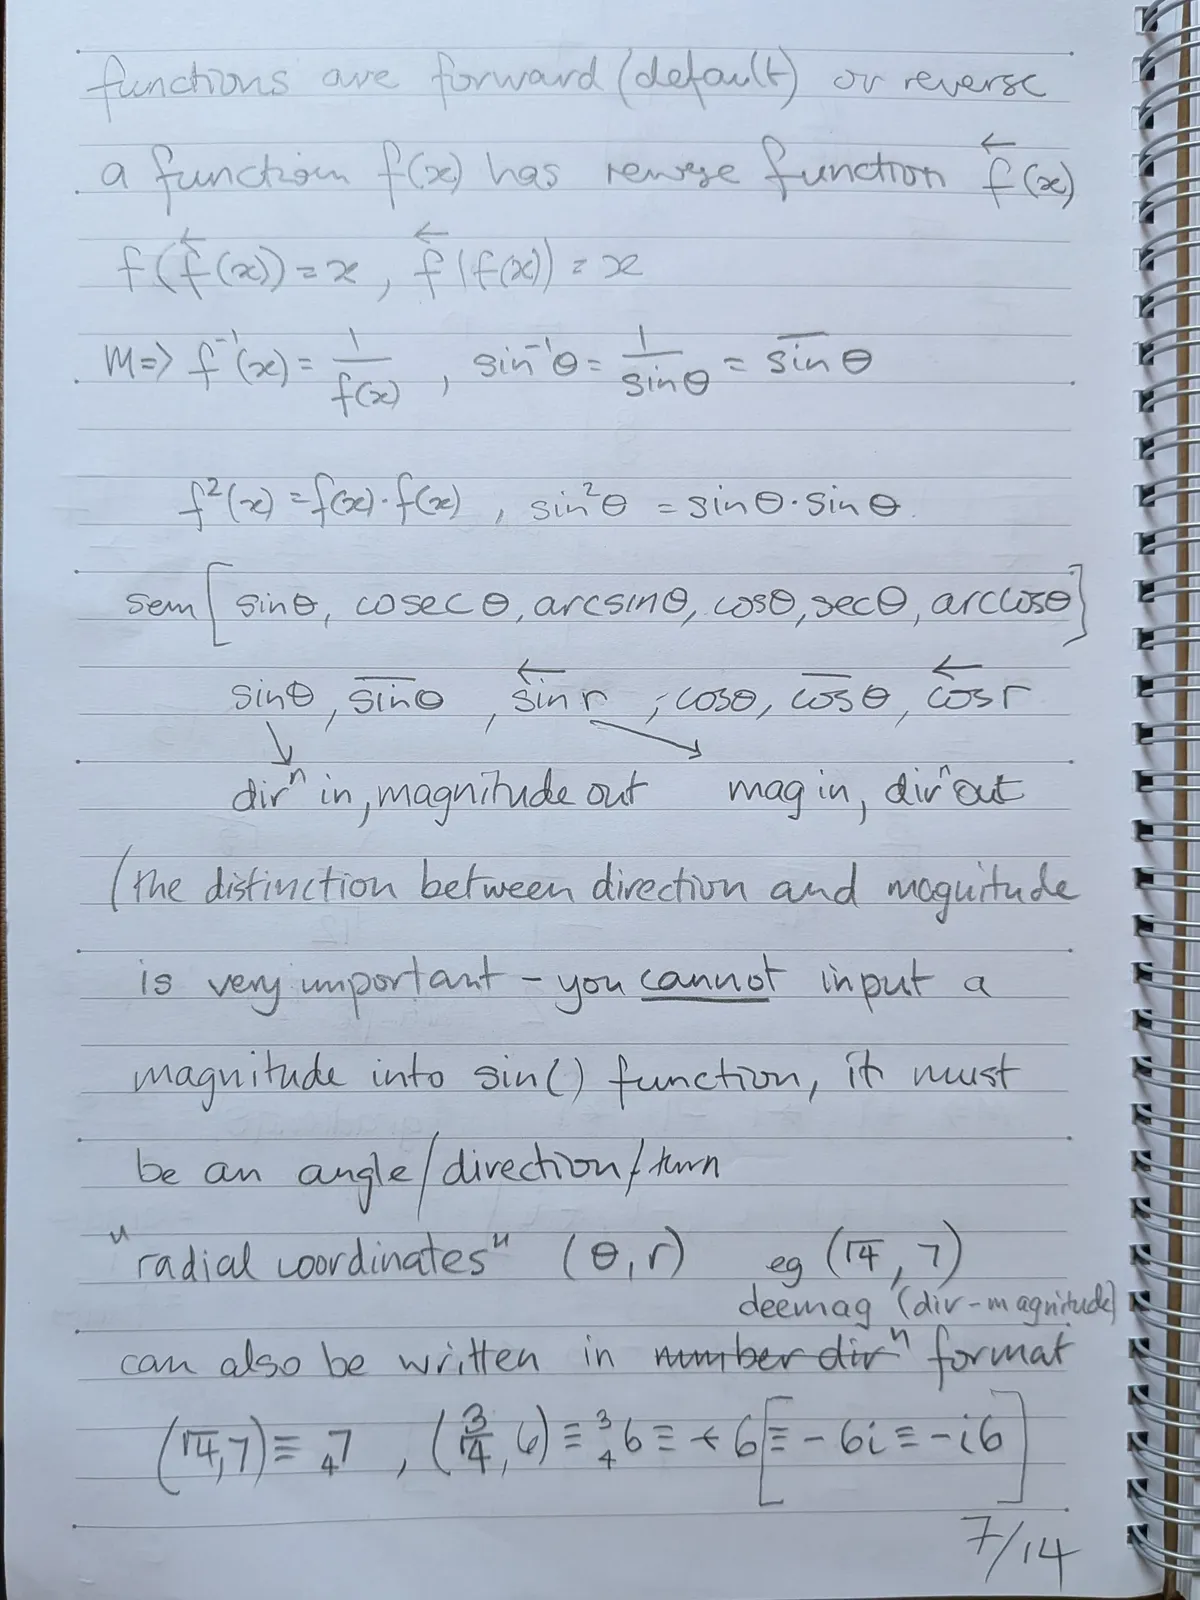 functions are forward (default) or reverse
a function f(x) has reverse function f⃖(x)
f(f⃖(x)) = x , f⃖(f(x)) = x
M=> f⁻¹(x) = 1/f(x) , sin⁻¹θ = 1/sinθ = s̅i̅n̅θ
f²(x) = f(x)·f(x) , sin²θ = sinθ·sinθ.
sem [sinθ, cosecθ, arcsinθ, cosθ, secθ, arccosθ]
sinθ , s̅i̅n̅θ , ←sin r ; cosθ, c̅o̅s̅θ, ←cos r
dirⁿ in, magnitude out mag in, dirⁿ out
(the distinction between direction and magnitude
is very important - you cannot input a
magnitude into sin() function, it must
be an angle/direction/turn
"radial coordinates" (θ, r) eg (┌4, 7)
deemag (dir-magnitude)
can also be written in number dirⁿ format
(┌4, 7) ≡ ₄7 , (3/┌4, 6) ≡ ³₄6 ≡ ⤙6 [≡ -6i ≡ -i6]
7/14